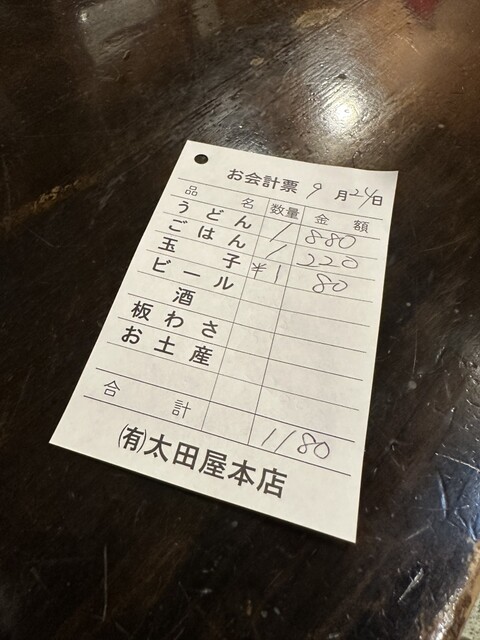 お会計票 9月24日
品名 数量 金額
うどん 1 880
ごはん 1 220
玉子 *1 80
ビール
酒
板わさ
お土産
合計 1180
(有)太田屋本店